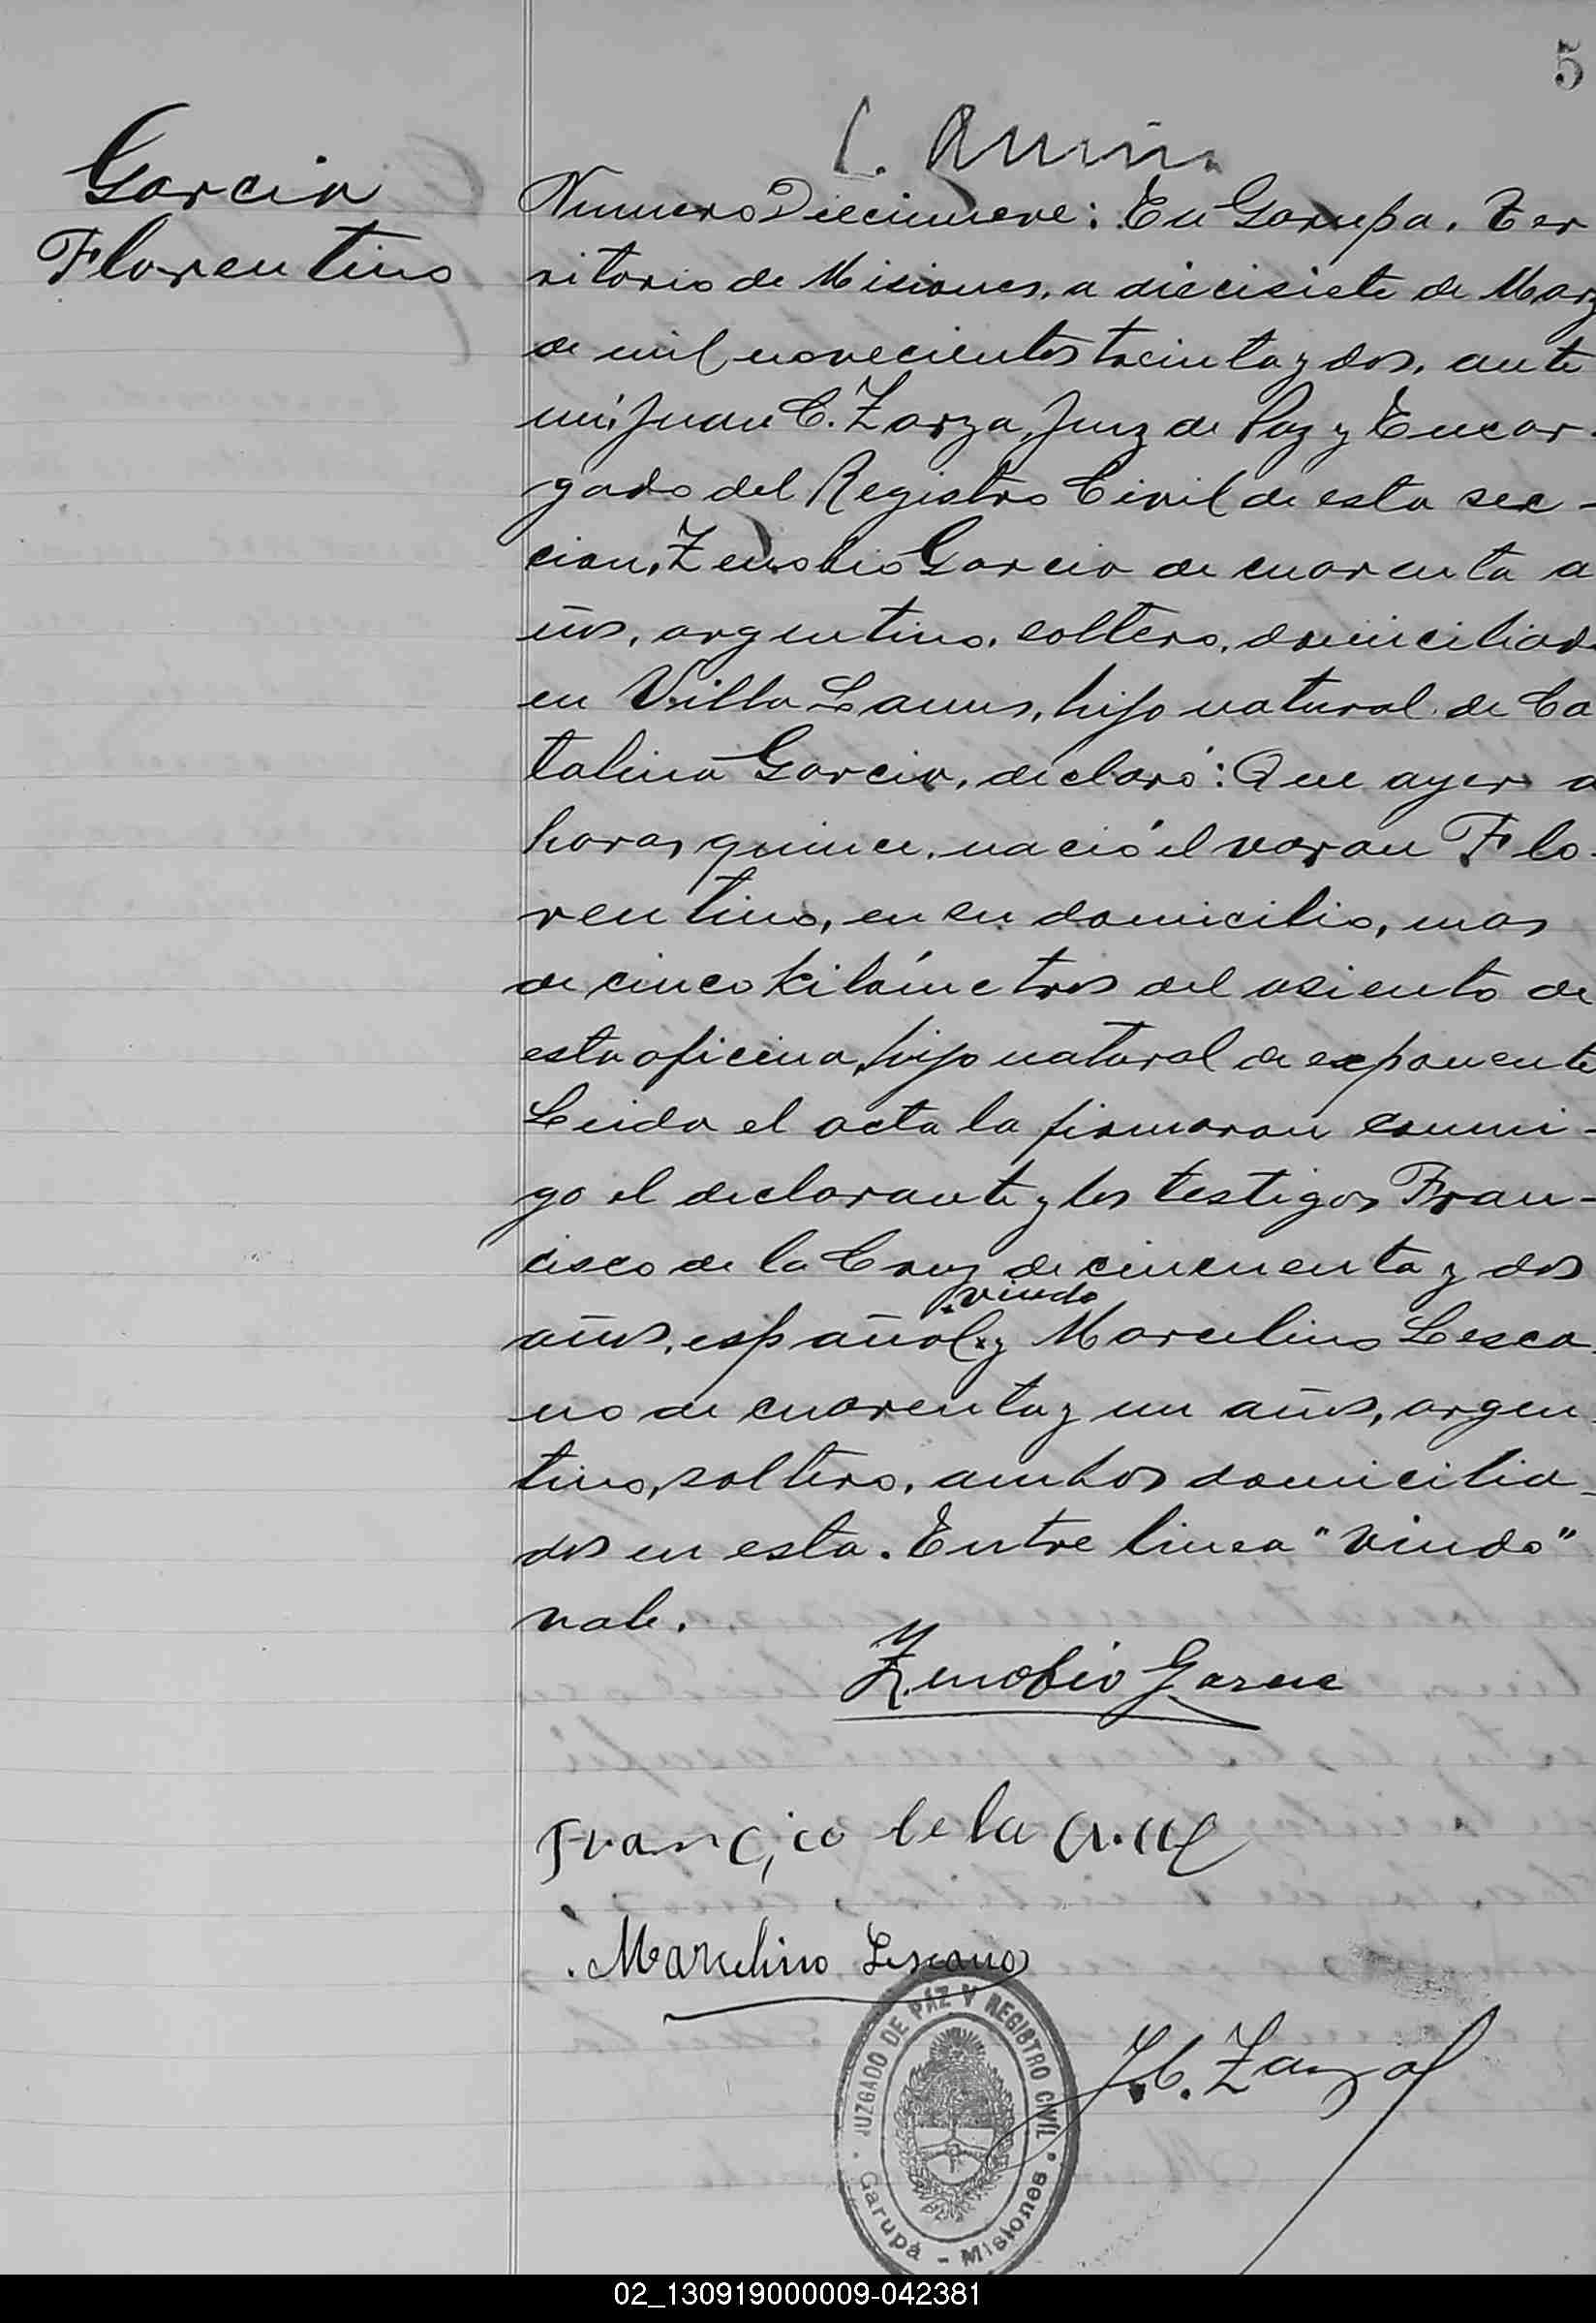 5
Garcia
Florentino
Numero Diecinueve: En Garupa. Ter
ritorio de Misiones, a diecisiete de Marz
de mil novecientos treinta y dos, ante
mi, Juan C. Zarza, Juez de Paz y Encar-
gado del Registro Civil de esta sec-
cion, Zenobio Garcia de cuarenta a
ños, argentino, soltero, domiciliado
en Villa Lanus, hijo natural de Ca
talina Garcia, declaró: Que ayer a
horas quince, nació el varon Flo-
rentino, en su domicilio, mas
de cinco kilómetros del asiento de
esta oficina, hijo natural de exponente
Leida el acta la firmaron conmi-
go el declarante y los testigos Fran-
cisco de la Cruz de cincuenta y dos
viudo
años, español x y Marcelino Lesca-
no de cuarenta y un años, argen
tino, soltero, ambos domicilia-
dos en esta. Entre linea "viudo"
vale.
Zenobio Garcia
Francico de la Cruz
Marcelino Lescano
J.C. Zarza
JUZGADO DE PAZ Y REGISTRO CIVIL
Garupá - Misiones
02_130919000009-042381